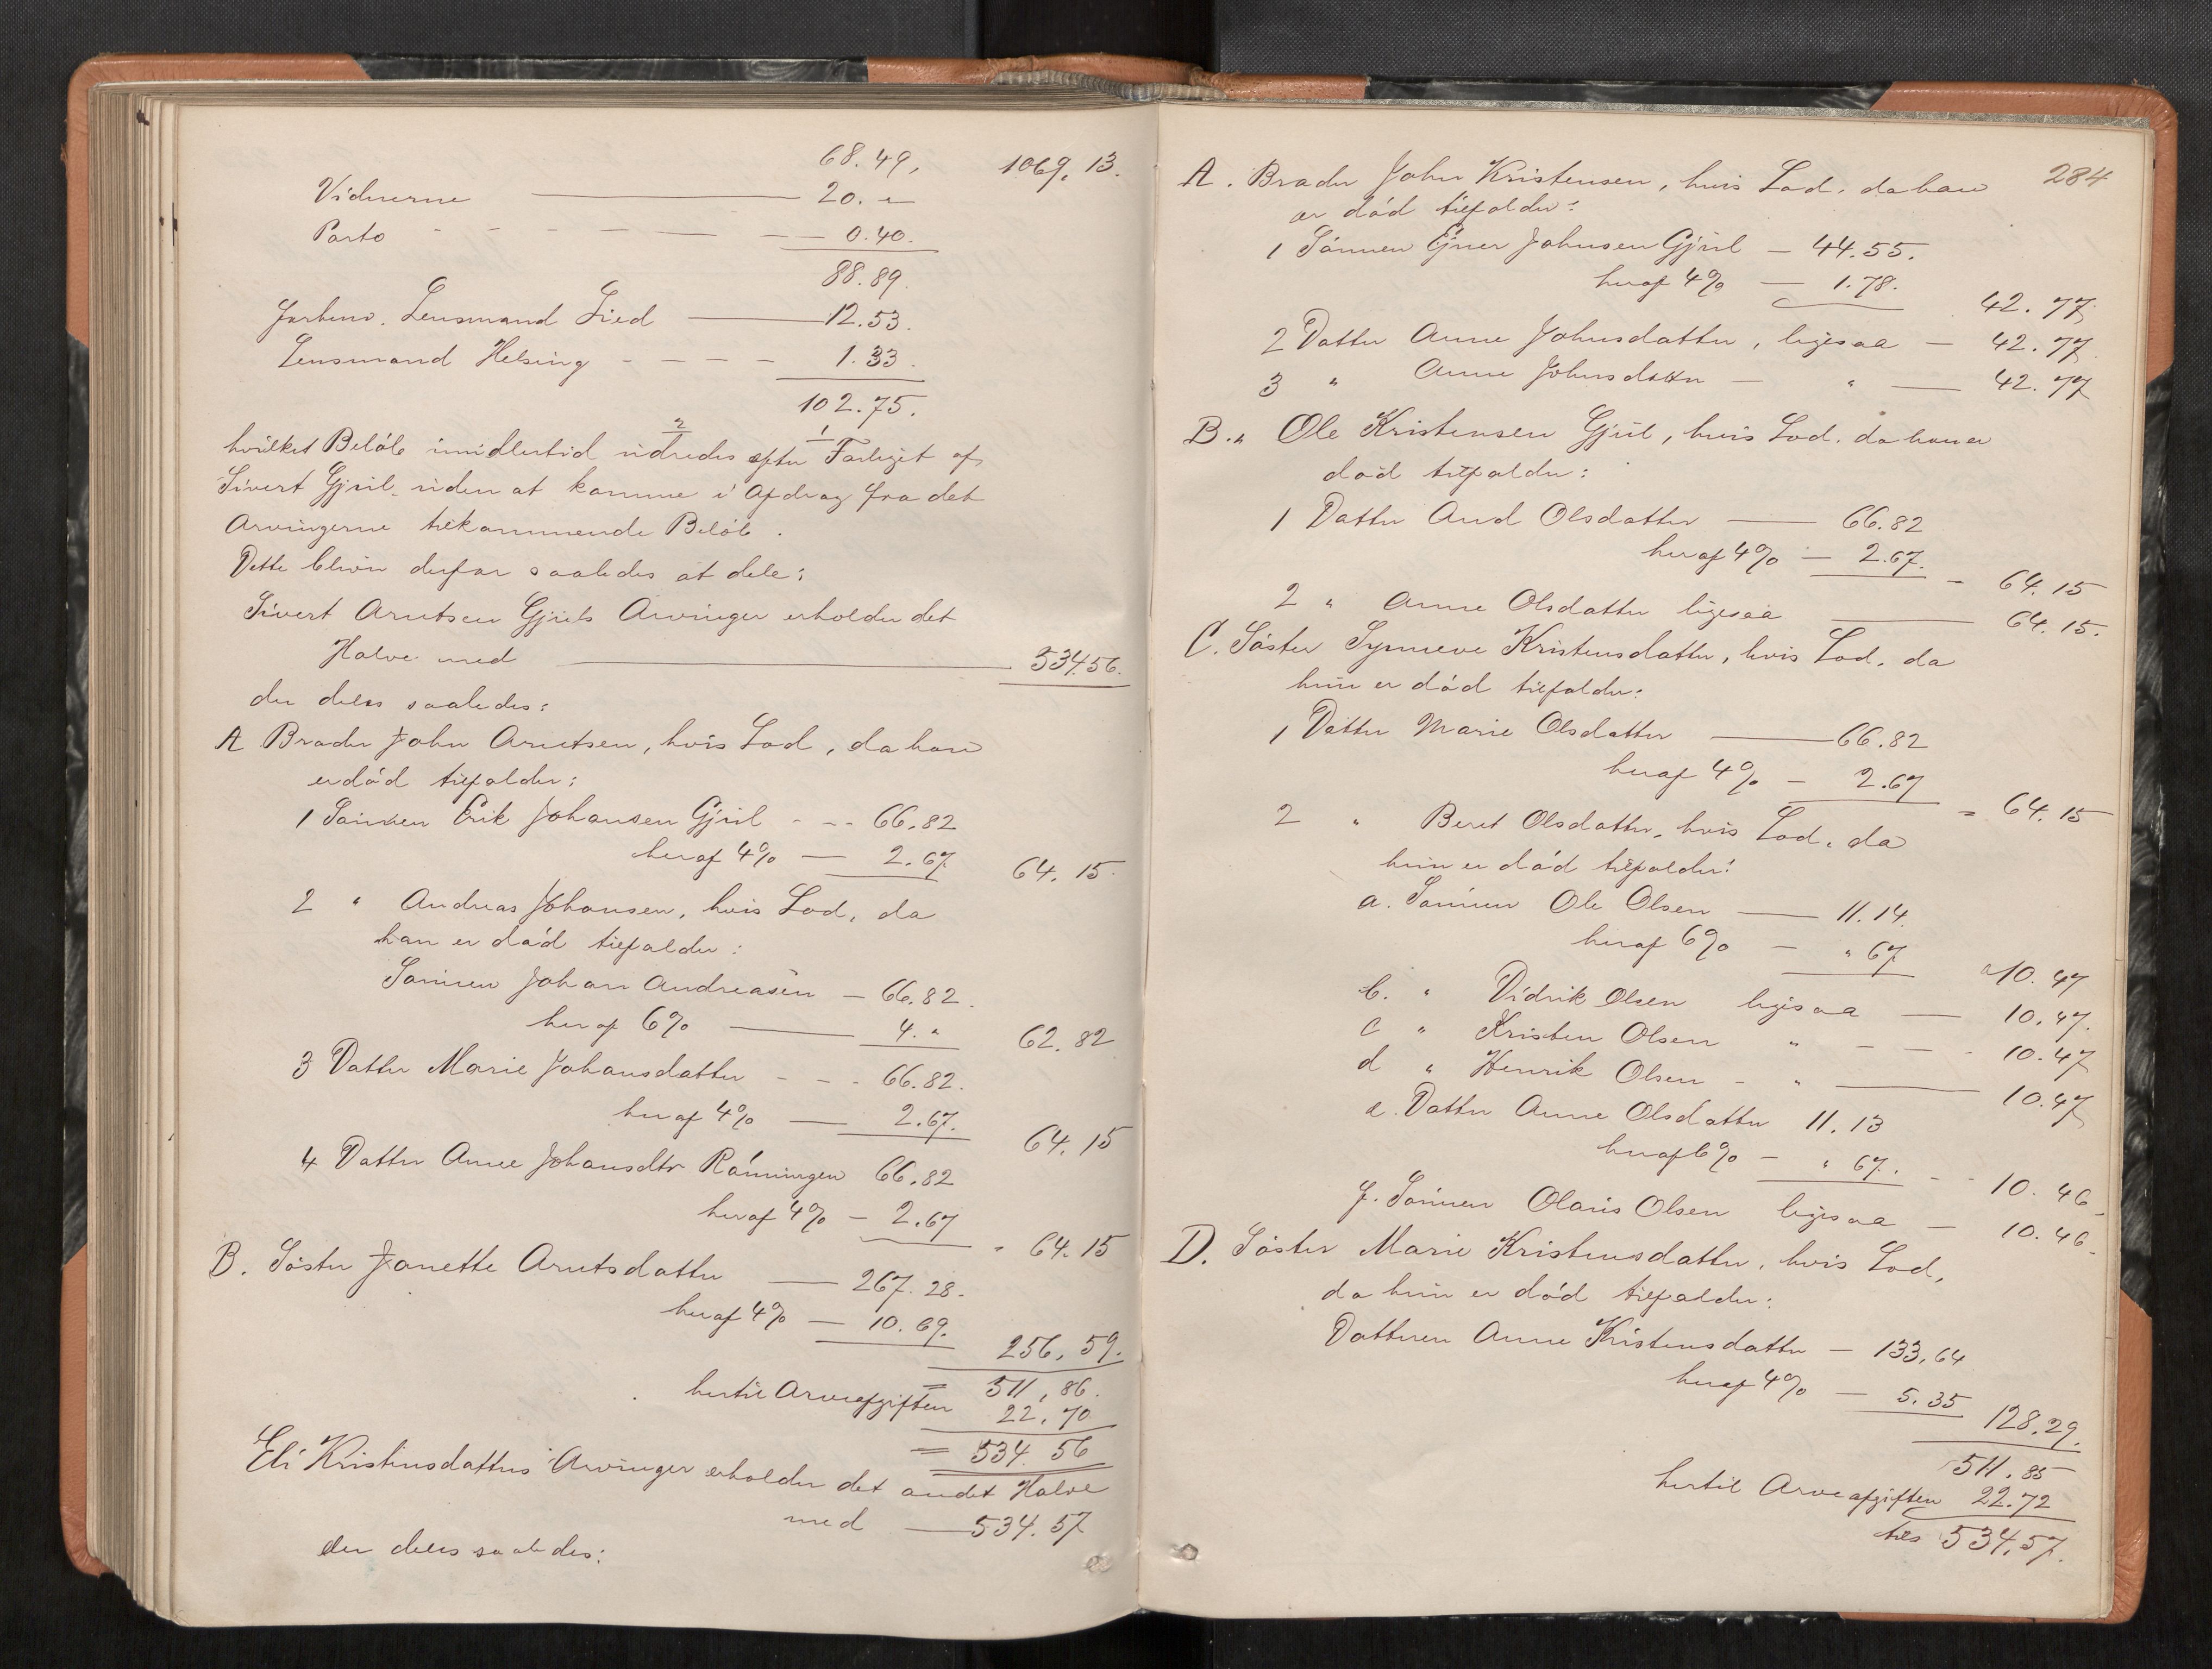 68.49, 1069,13.
Vidnerne — 20. "
Porto - - - - - 0.40.
88.89.
Forhenv. Lensmand Lied — 12.53.
Lensmand Helsing - - - - 1.33.
102.75.
hvilket Beløb imidlertid udredes 2 efter 1 Forliget af
Sivert Gjül uden at komme i Afdrag fra det
Arvingerne tilkommende Beløb.
Dette bliver derfor saaledes at dele:
Sivert Arntsen Gjüls Arvinger erholder det
Halve med — 534.56.
der deles saaledes:
A Broder John Arntsen, hvis Lod, da han
er død tilfalder:
1 Sønnen Erik Johansen Gjül - - - 66.82
heraf 4% — 2.67. 64.15.
2 " Andreas Johansen, hvis Lod, da
han er død tilfalder:
Sønnen Johan Andreasen — 66.82.
heraf 6% — 4. " 62.82
3 Datter Marie Johansdatter - - - 66.82.
heraf 4% — 2.67. 64.15
4 Datter Anne Johansdtr Rønningen 66.82
heraf 4% — 2.67 - 64.15
B. Søster Janette Arntsdatter — 267.28.
heraf 4% — 10.69. 256,59.
= 511,86.
hertil Arveafgiften 22,70
= 534.56
Eli Kristensdatters Arvinger erholder det andet Halve
med — 534.57
der deles saaledes:
284
A. Broder John Kristensen, hvis Lod, da han
er død tilfalder:
1 Sønnen Ejner Johnsen Gjül — 44.55.
heraf 4% — 1.78. 42.77.
2 Datter Anne Johnsdatter, ligesaa — 42.77.
3 " Anne Johnsdatter — " — 42.77
B. " Ole Kristensen Gjül, hvis Lod, da han er
død tilfalder:
1 Datter Aud Olsdatter — 66.82
heraf 4% — 2.67. - 64.15
2 " Anne Olsdatter ligesaa — 64.15.
C. Søster Synneve Kristensdatter, hvis Lod, da
hun er død tilfalder:
1 Datter Marie Olsdatter — 66.82
heraf 4% — 2.67 = 64.15
2 " Beret Olsdatter, hvis Lod, da
hun er død tilfalder:
a. Sønnen Ole Olsen — 11.14.
heraf 6% — " 67 10.47
b. " Didrik Olsen ligesaa — 10.47.
c " Kristen Olsen " - - - 10.47
d " Henrik Olsen - " — 10.47
e. Datter Anne Olsdatter 11.13
heraf 6% — " 67. - - 10.46
f. Sønnen Olaus Olsen ligesaa — 10.46.
D. Søster Marie Kristensdatter, hvis Lod,
da hun er død tilfalder:
Datteren Anne Kristensdatter — 133,64
heraf 4% — 5.35 128.29.
511.85
hertil Arveafgiften 22.72
tils 534,57.